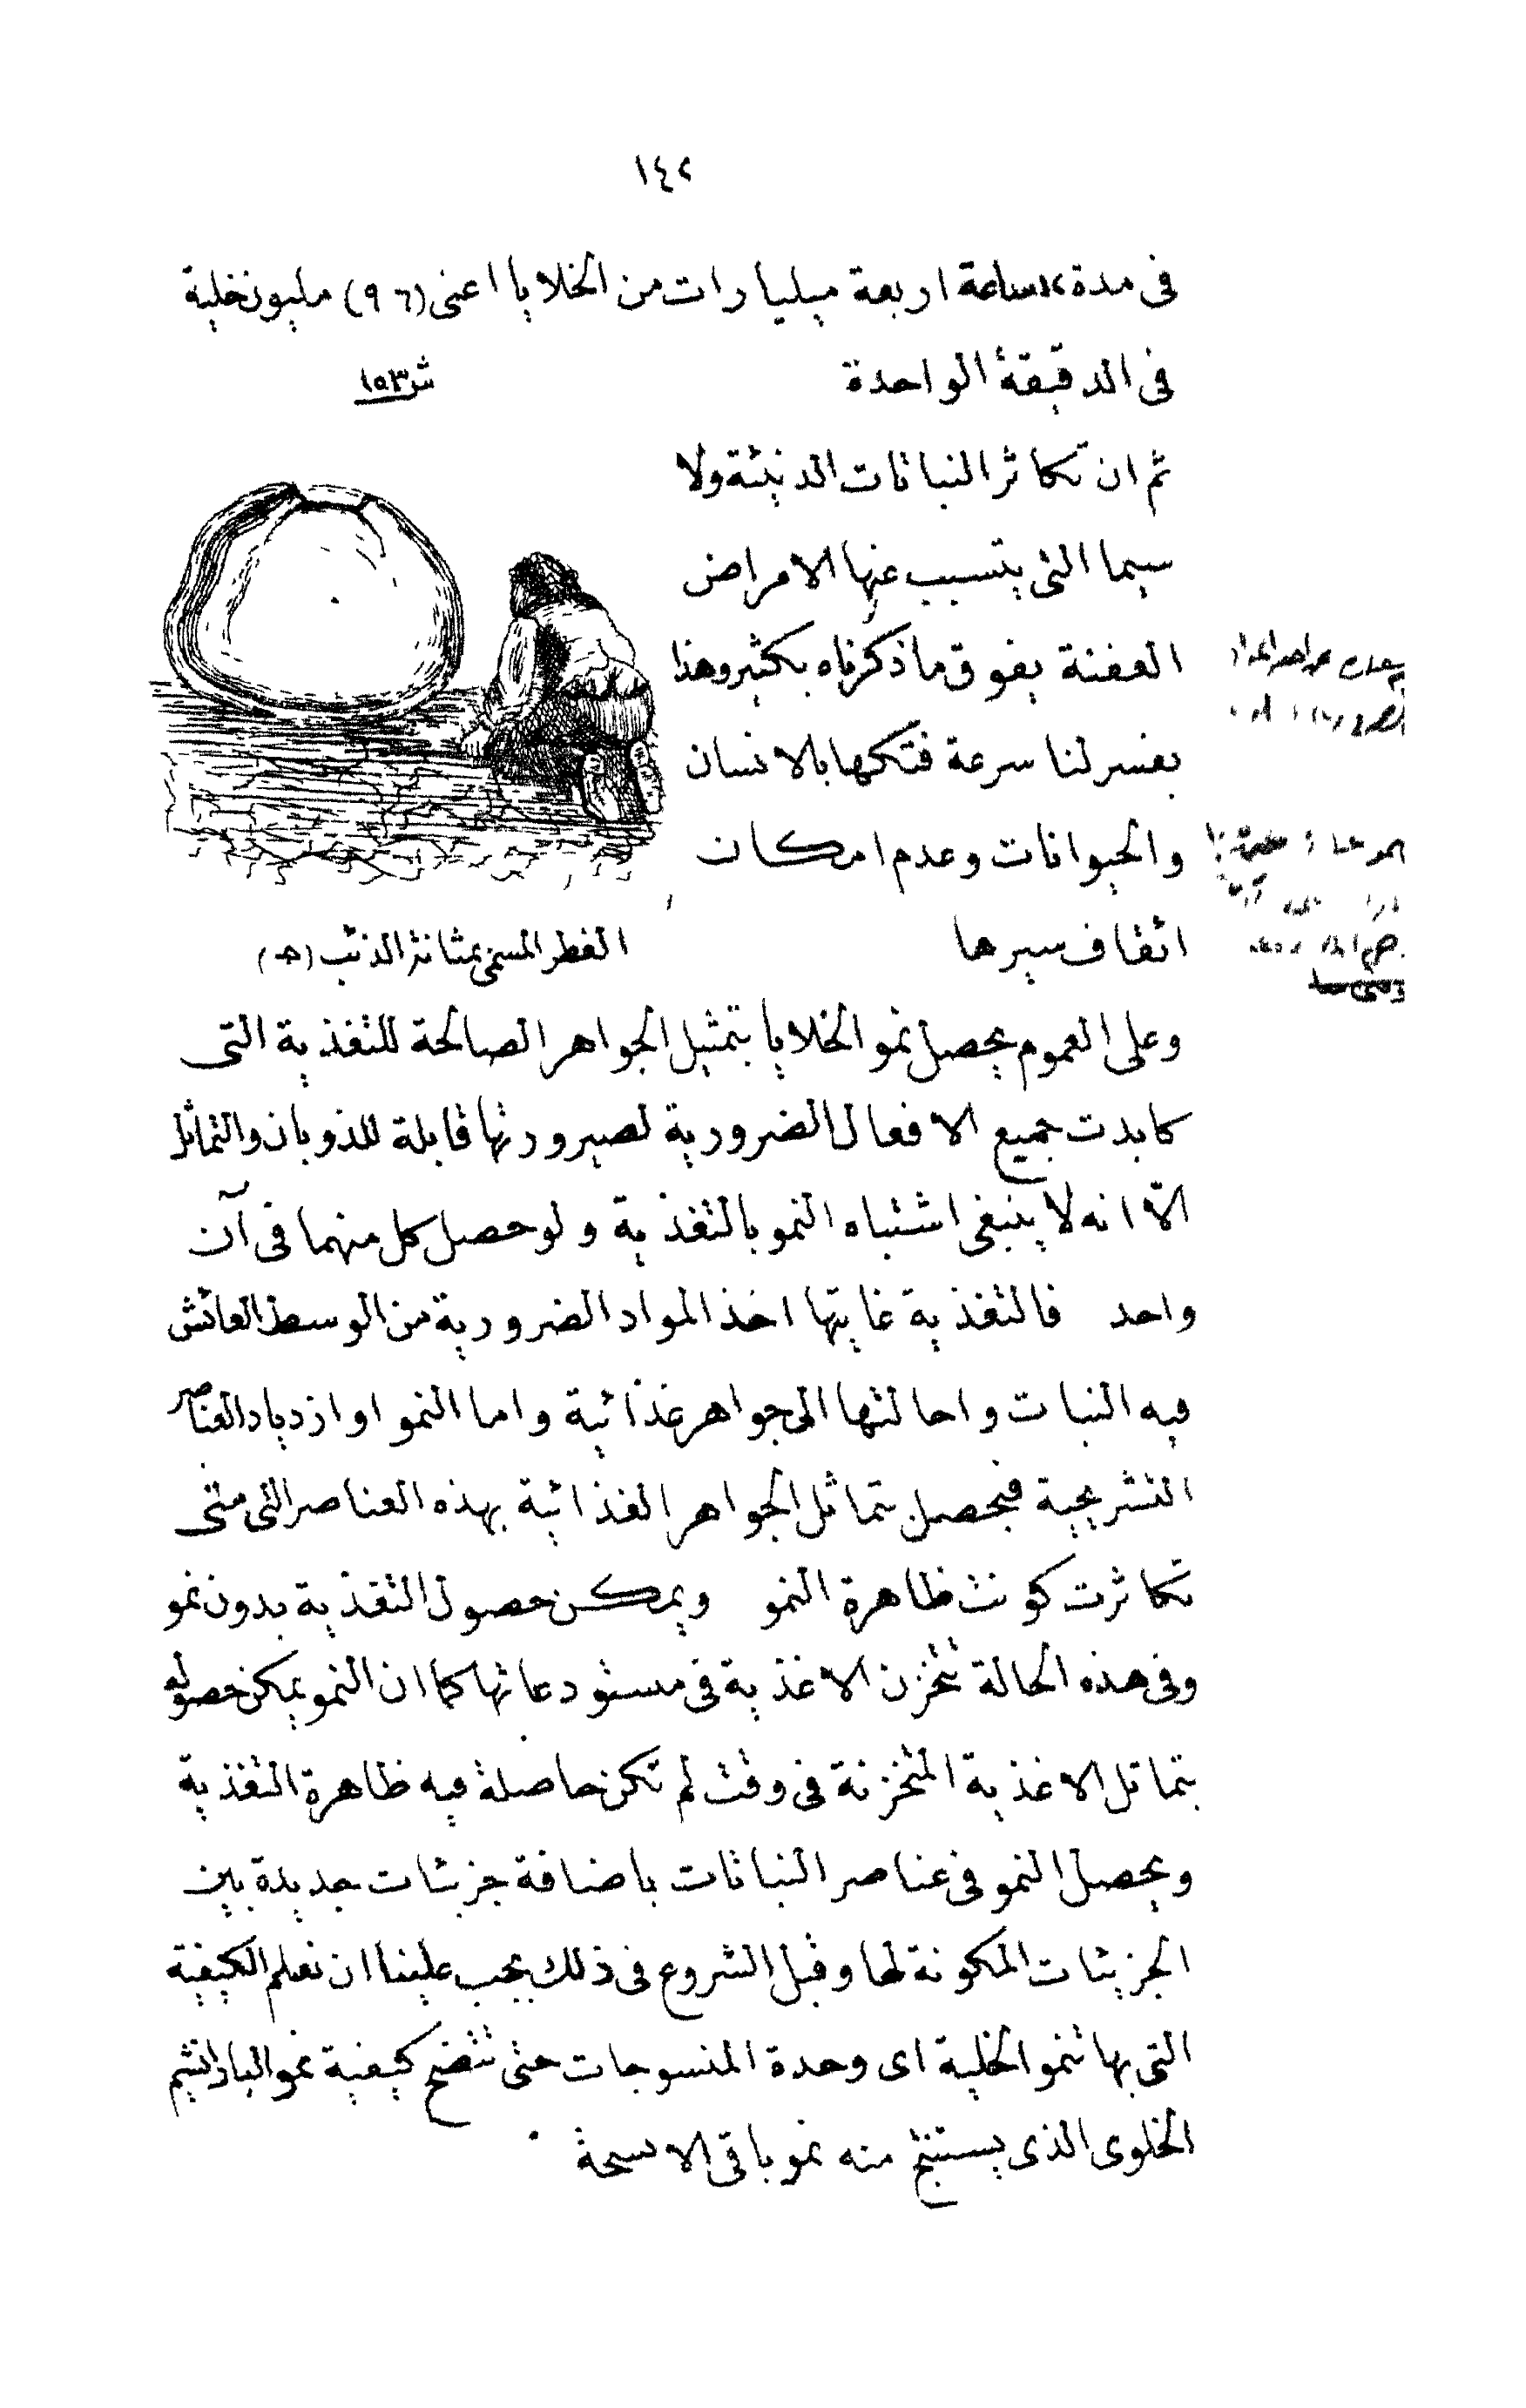 ١٤٢
فى مدة ١٢ ساعة اربعة ميليارات من الخلايا اعنى (٩٦) مليون خلية
فى الدقيقة الواحدة
ش ١٥٣
ثم ان تكاثر النباتات الدنيئة ولا
سيما التى يتسبب عنها الامراض
العفنة يفوق ما ذكرناه بكثير وهذا
يفسر لنا سرعة فتكها بالانسان
والحيوانات وعدم امكان
اتقاف سيرها
الفطر المسمى بمثانة الذئب (هـ)
وعلى العموم يحصل نمو الخلايا بتمثيل الجواهر الصالحة للتغذية التى
كابدت جميع الافعال الضرورية لصيرورتها قابلة للذوبان والتماثل
الّا انه لا ينبغى اشتباه النمو بالتغذية ولو حصل كل منهما فى آن
واحد فالتغذية غايتها اخذ المواد الضرورية من الوسط العائش
فيه النبات واحالتها الى جواهر غذائية واما النمو او ازدياد العناصر
التشريحية فيحصل بتماثل الجواهر الغذائية بهذه العناصر التى متى
تكاثرت كونت ظاهرة النمو ويمكن حصول التغذية بدون نمو
وفى هذه الحالة تتخزن الاغذية فى مستودعاتها كما ان النمو يمكن حصوله
بتماثل الاغذية المتخزنة فى وقت لم تكن حاصلة فيه ظاهرة التغذية
ويحصل النمو فى عناصر النباتات باضافة جزيئات جديدة بين
الجزيئات المكونة لها وقبل الشروع فى ذلك يجب علينا ان نعلم الكيفية
التى بها تنمو الخلية اى وحدة المنسوجات حتى تتضح كيفية نمو البارانشيم
الخلوى الذى يستنتج منه نمو باقى الانسجة